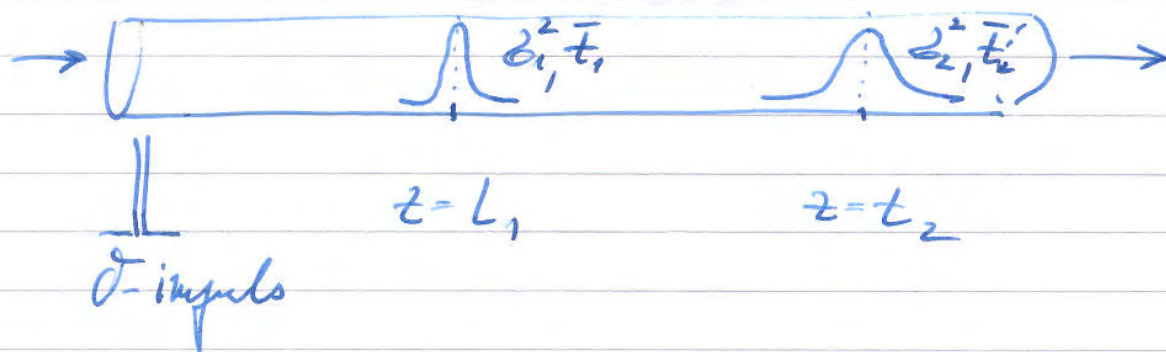 σ₁², t̄₁ σ₂², t̄₂
z = L₁ z = t₂
δ-impuls